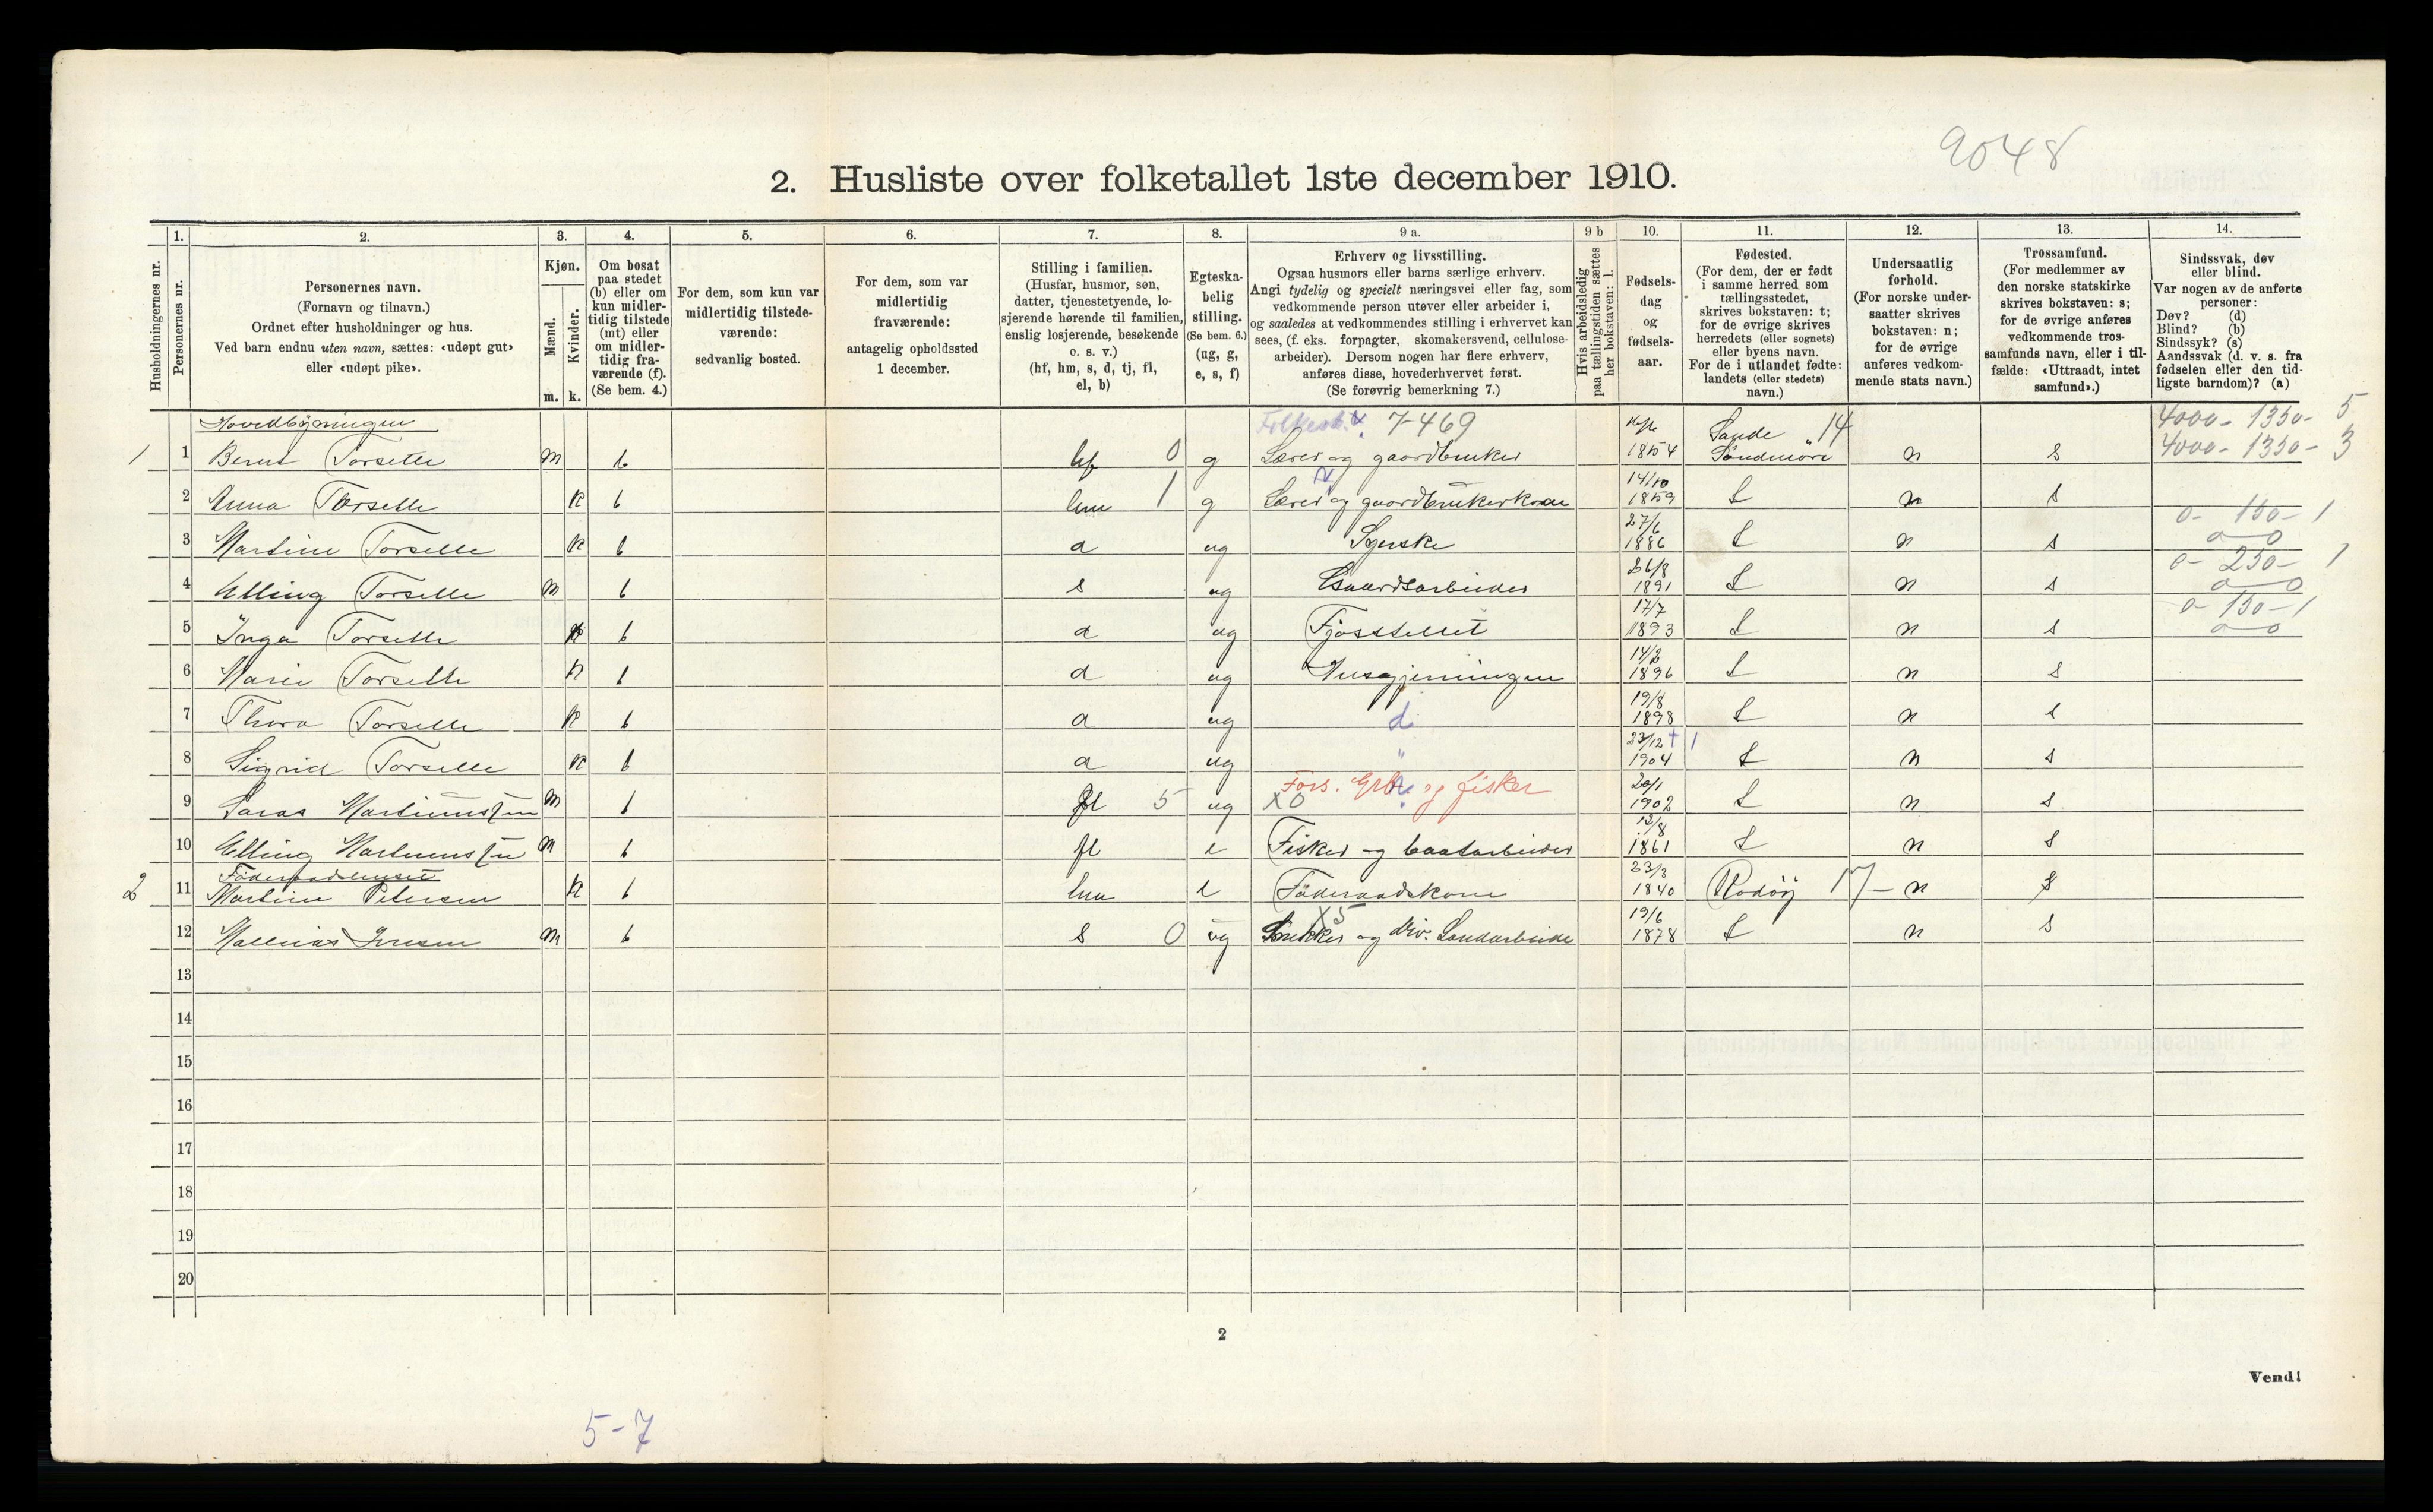 9048
2. Husliste over folketallet 1ste december 1910.
Husholdningernes nr.
1.
Personernes nr.
2.
Personernes navn.
(Fornavn og tilnavn.)
Ordnet efter husholdninger og hus.
Ved barn endnu uten navn, sættes: «udøpt gut»
eller «udøpt pike».
3.
Kjøn.
Mænd.
Kvinder.
m. k.
4.
Om bosat
paa stedet
(b) eller om
kun midler-
tidig tilstede
(mt) eller
om midler-
tidig fra-
værende (f).
(Se bem. 4.)
5.
For dem, som kun var
midlertidig tilstede-
værende:
sedvanlig bosted.
6.
For dem, som var
midlertidig
fraværende:
antagelig opholdssted
1 december.
7.
Stilling i familien.
(Husfar, husmor, søn,
datter, tjenestetyende, lo-
sjerende hørende til familien,
enslig losjerende, besøkende
o. s. v.)
(hf, hm, s, d, tj, fl,
el, b)
8.
Egteska-
belig
stilling.
(Se bem. 6.)
(ug, g,
e, s, f)
9 a.
Erhverv og livsstilling.
Ogsaa husmors eller barns særlige erhverv.
Angi tydelig og specielt næringsvei eller fag, som
vedkommende person utøver eller arbeider i,
og saaledes at vedkommendes stilling i erhvervet kan
sees, (f. eks. forpagter, skomakersvend, cellulose-
arbeider). Dersom nogen har flere erhverv,
anføres disse, hovederhvervet først.
(Se forøvrig bemerkning 7.)
9 b
Hvis arbeidsledig
paa tællingstiden sættes
her bokstaven: l.
10.
Fødsels-
dag
og
fødsels-
aar.
11.
Fødested.
(For dem, der er født
i samme herred som
tællingsstedet,
skrives bokstaven: t;
for de øvrige skrives
herredets (eller sognets)
eller byens navn.
For de i utlandet fødte:
landets (eller stedets)
navn.)
12.
Undersaatlig
forhold.
(For norske under-
saatter skrives
bokstaven: n;
for de øvrige
anføres vedkom-
mende stats navn.)
13.
Trossamfund.
(For medlemmer av
den norske statskirke
skrives bokstaven: s;
for de øvrige anføres
vedkommende tros-
samfunds navn, eller i til-
fælde: «Uttraadt, intet
samfund».)
14.
Sindssvak, døv
eller blind.
Var nogen av de anførte
personer:
Døv? (d)
Blind? (b)
Sindssyk? (s)
Aandssvak (d. v. s. fra
fødselen eller den tid-
ligste barndom)? (a)
Hovedbygningen 7-469 Sande 14 4000- 1350- 5
1 1 Bernt Torsette m b hf 0 g Lærer og gaardbruker 1854 Søndmøre n s 4000- 1350- 3
2 Anna Torsette k b hm 1 g Lærer og gaardbrukerkone 14/10 1859 t n s
0- 150- 1
3 Martine Torsette k b d ug Syerske 27/6 1886 t n s 0 0
0- 250- 1
4 Elling Torsette m b s ug Gaardsarbeider 26/8 1891 t n s 0 0
0- 150- 1
5 Inga Torsette k b d ug Fjøsstellet 17/7 1893 t n s 0 0
6 Marie Torsette k b d ug Husgjerningen 14/2 1896 t n s
7 Thora Torsette k b d ug d 19/8 1898 t n s
8 Sigrid Torsette k b d ug " 23/12 1904 t n s
Fors. Grbr. og fisker
9 m b fl 5 ug X0 20/1 1902 t n s
10 Elling m b fl e Fisker og baatarbeider 12/8 1861 t n s
Føderaadshuset
2 11 Martine Petersen k b hm e Føderaadskone 23/3 1840 Rodøy 17- n s
X5
12 m b s 0 ug Snekker og div. Landarbeide 19/6 1878 t n s
13
14
15
16
17
18
19
20
2
Vend!
5-7